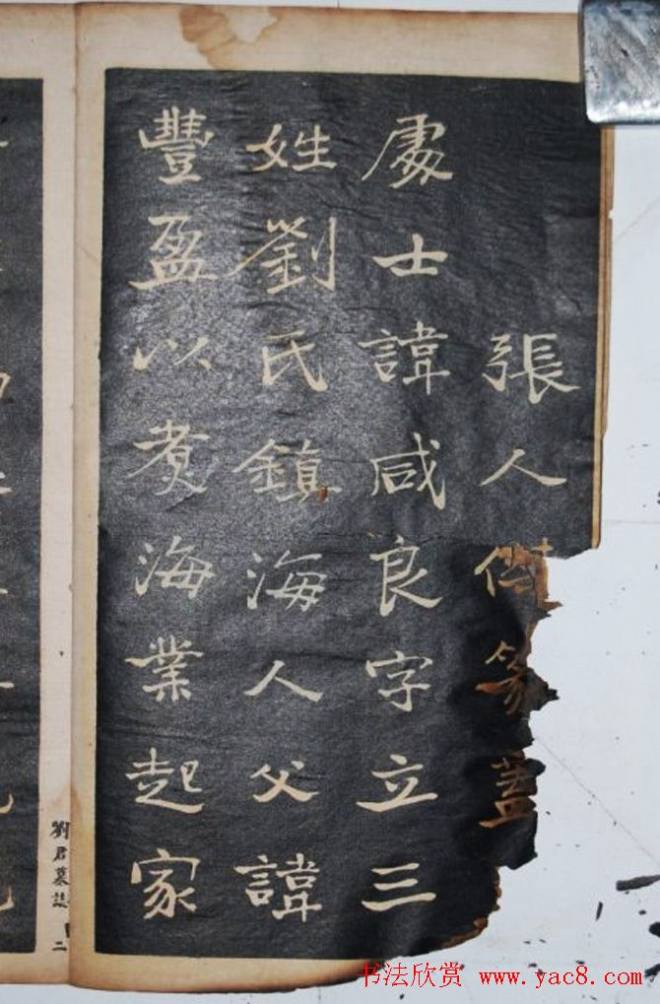 張人傑篆蓋
處士諱咸良字立三
姓劉氏鎮海人父諱
豐盈以煑海業起家
劉君墓誌
二
书法欣赏 www.yac8.com